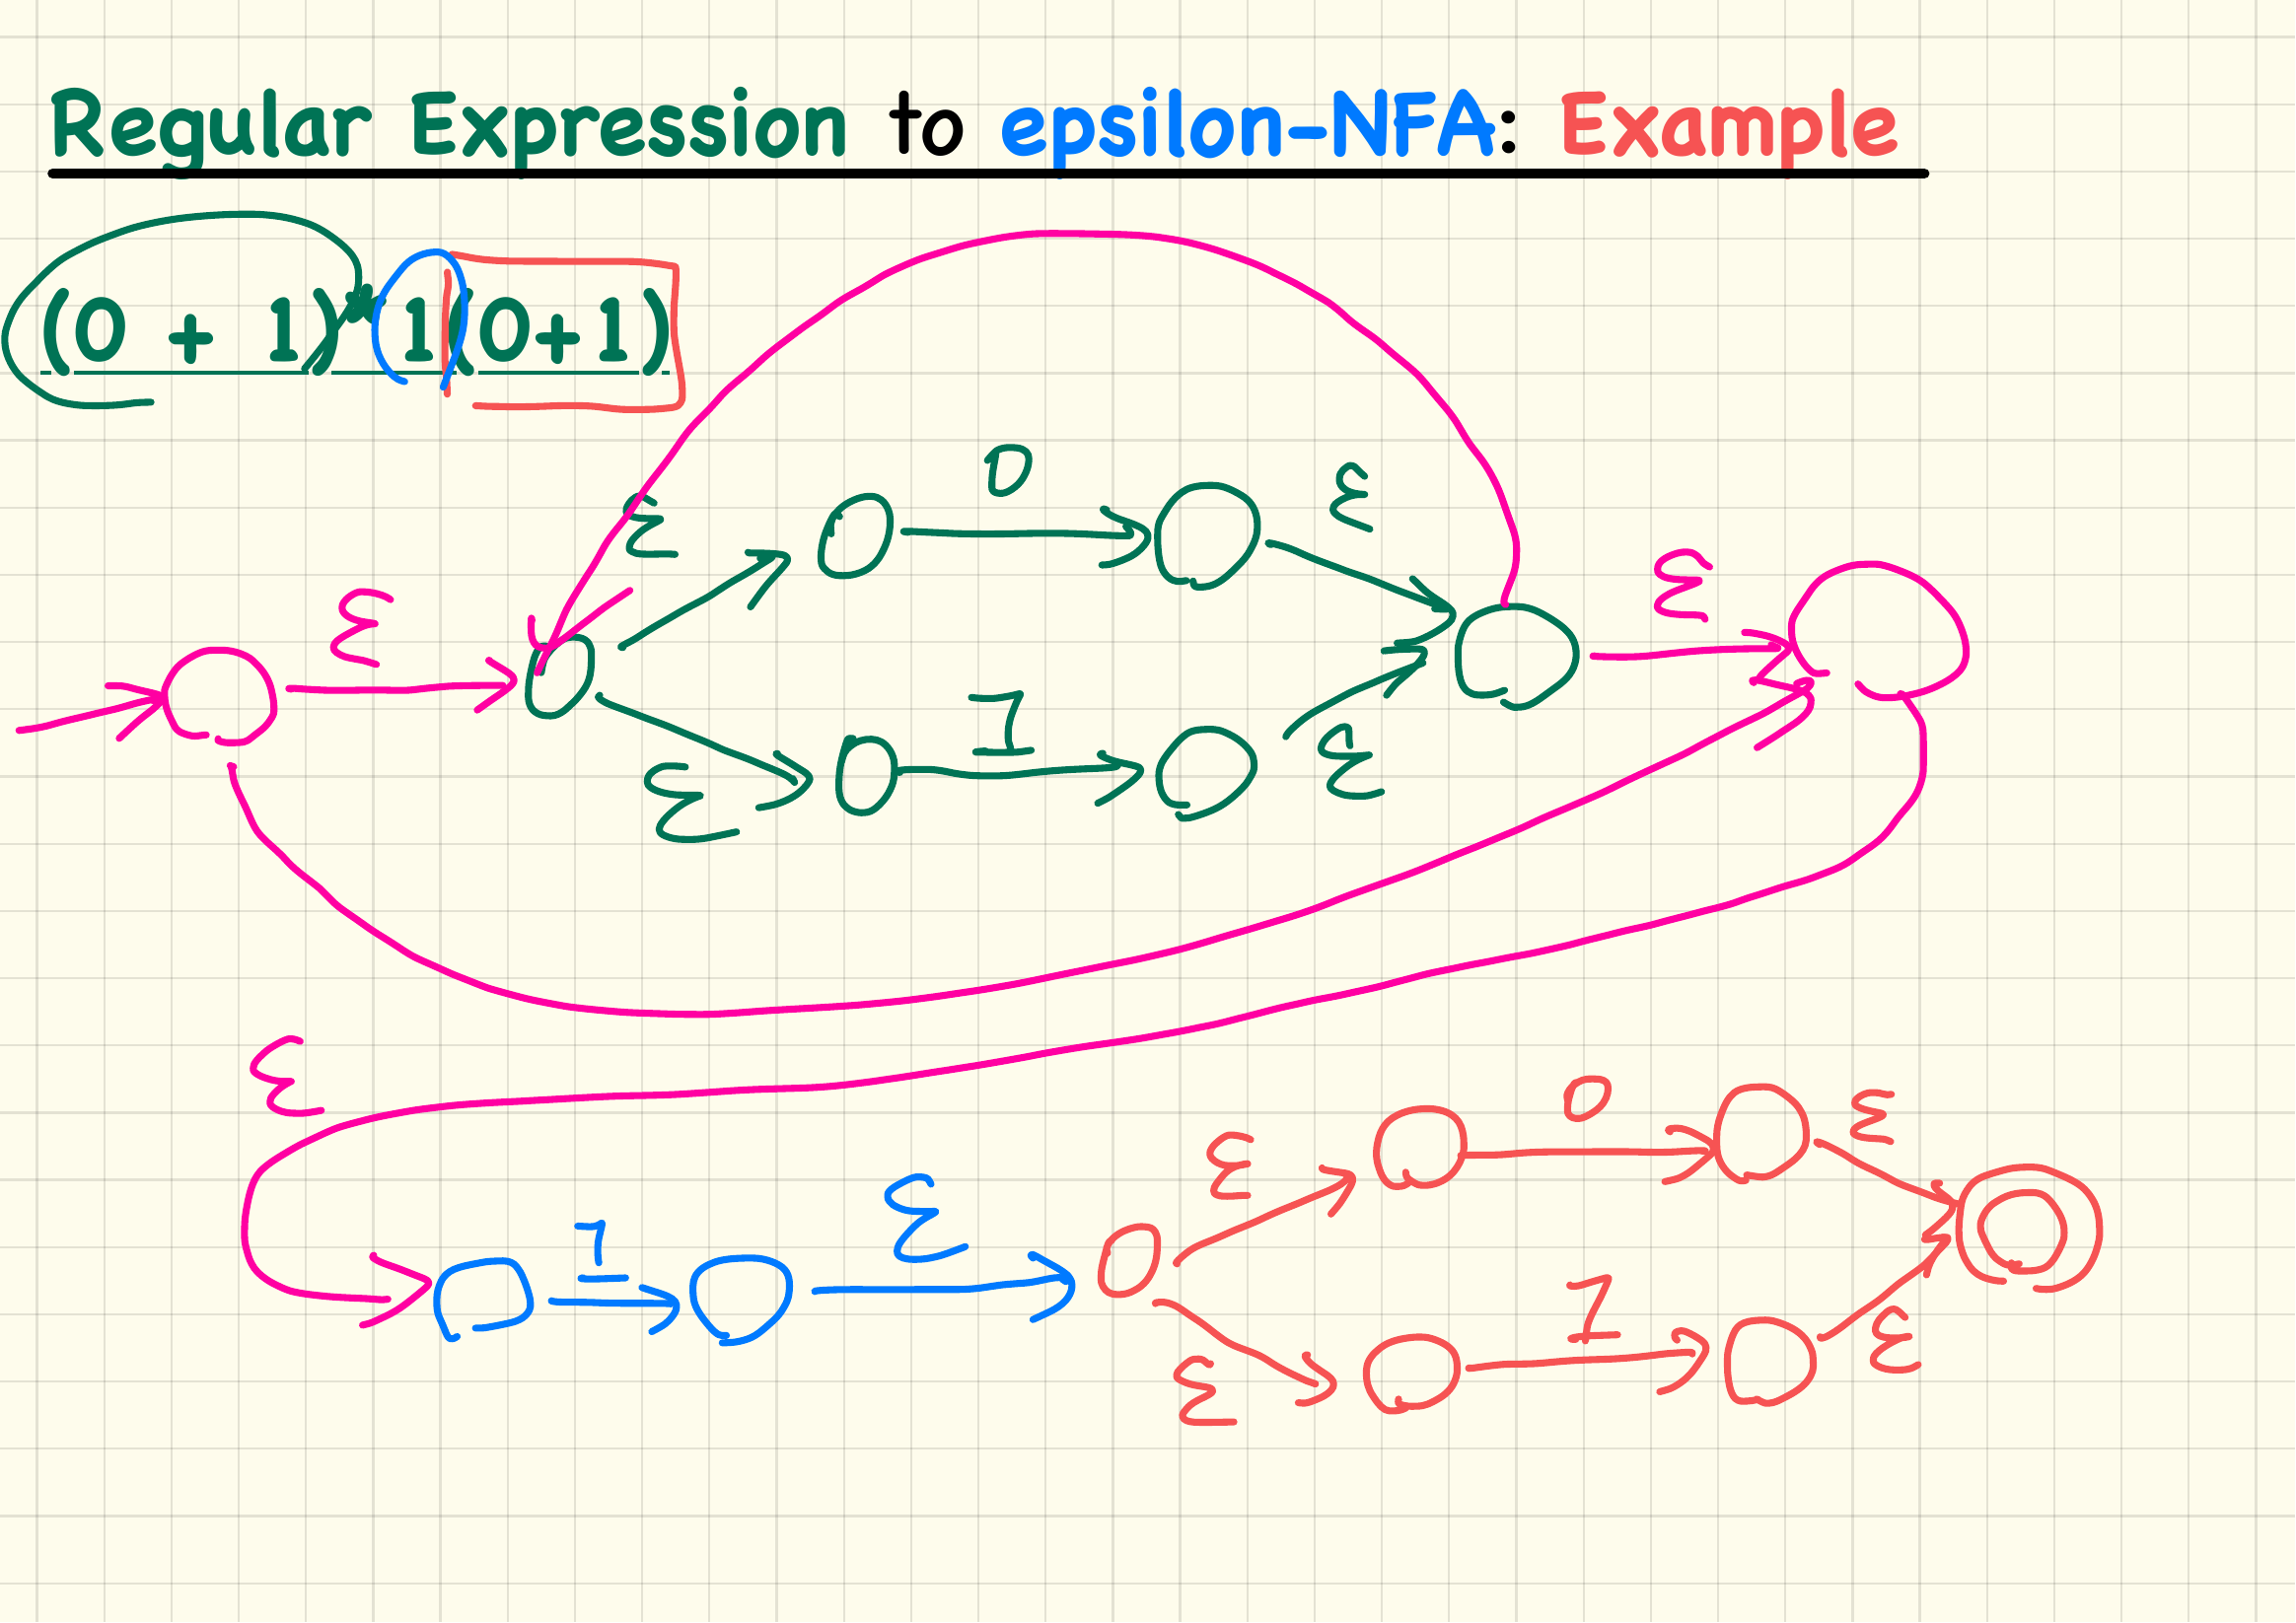 Regular Expression to epsilon-NFA: Example
(0 + 1)* 1(0+1)
0
ε
ε
ε
ε
1
ε
ε
ε
0
ε
ε
1
ε
1
ε
ε